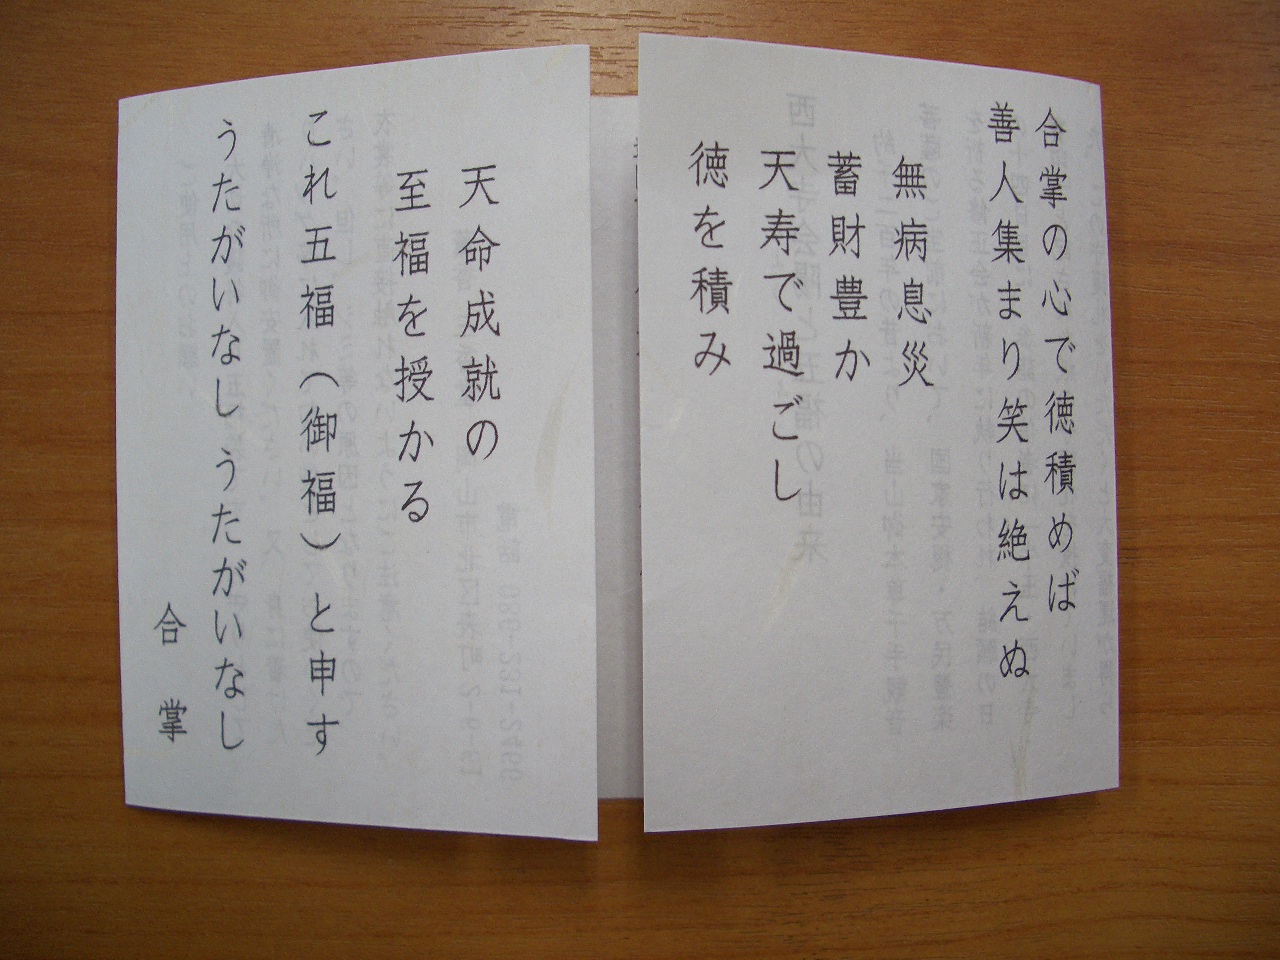 合掌の心で徳積めば
善人集まり笑は絶えぬ
無病息災
蓄財豊か
天寿で過ごし
徳を積み
天命成就の
至福を授かる
これ五福（御福）と申す
うたがいなしうたがいなし
合掌